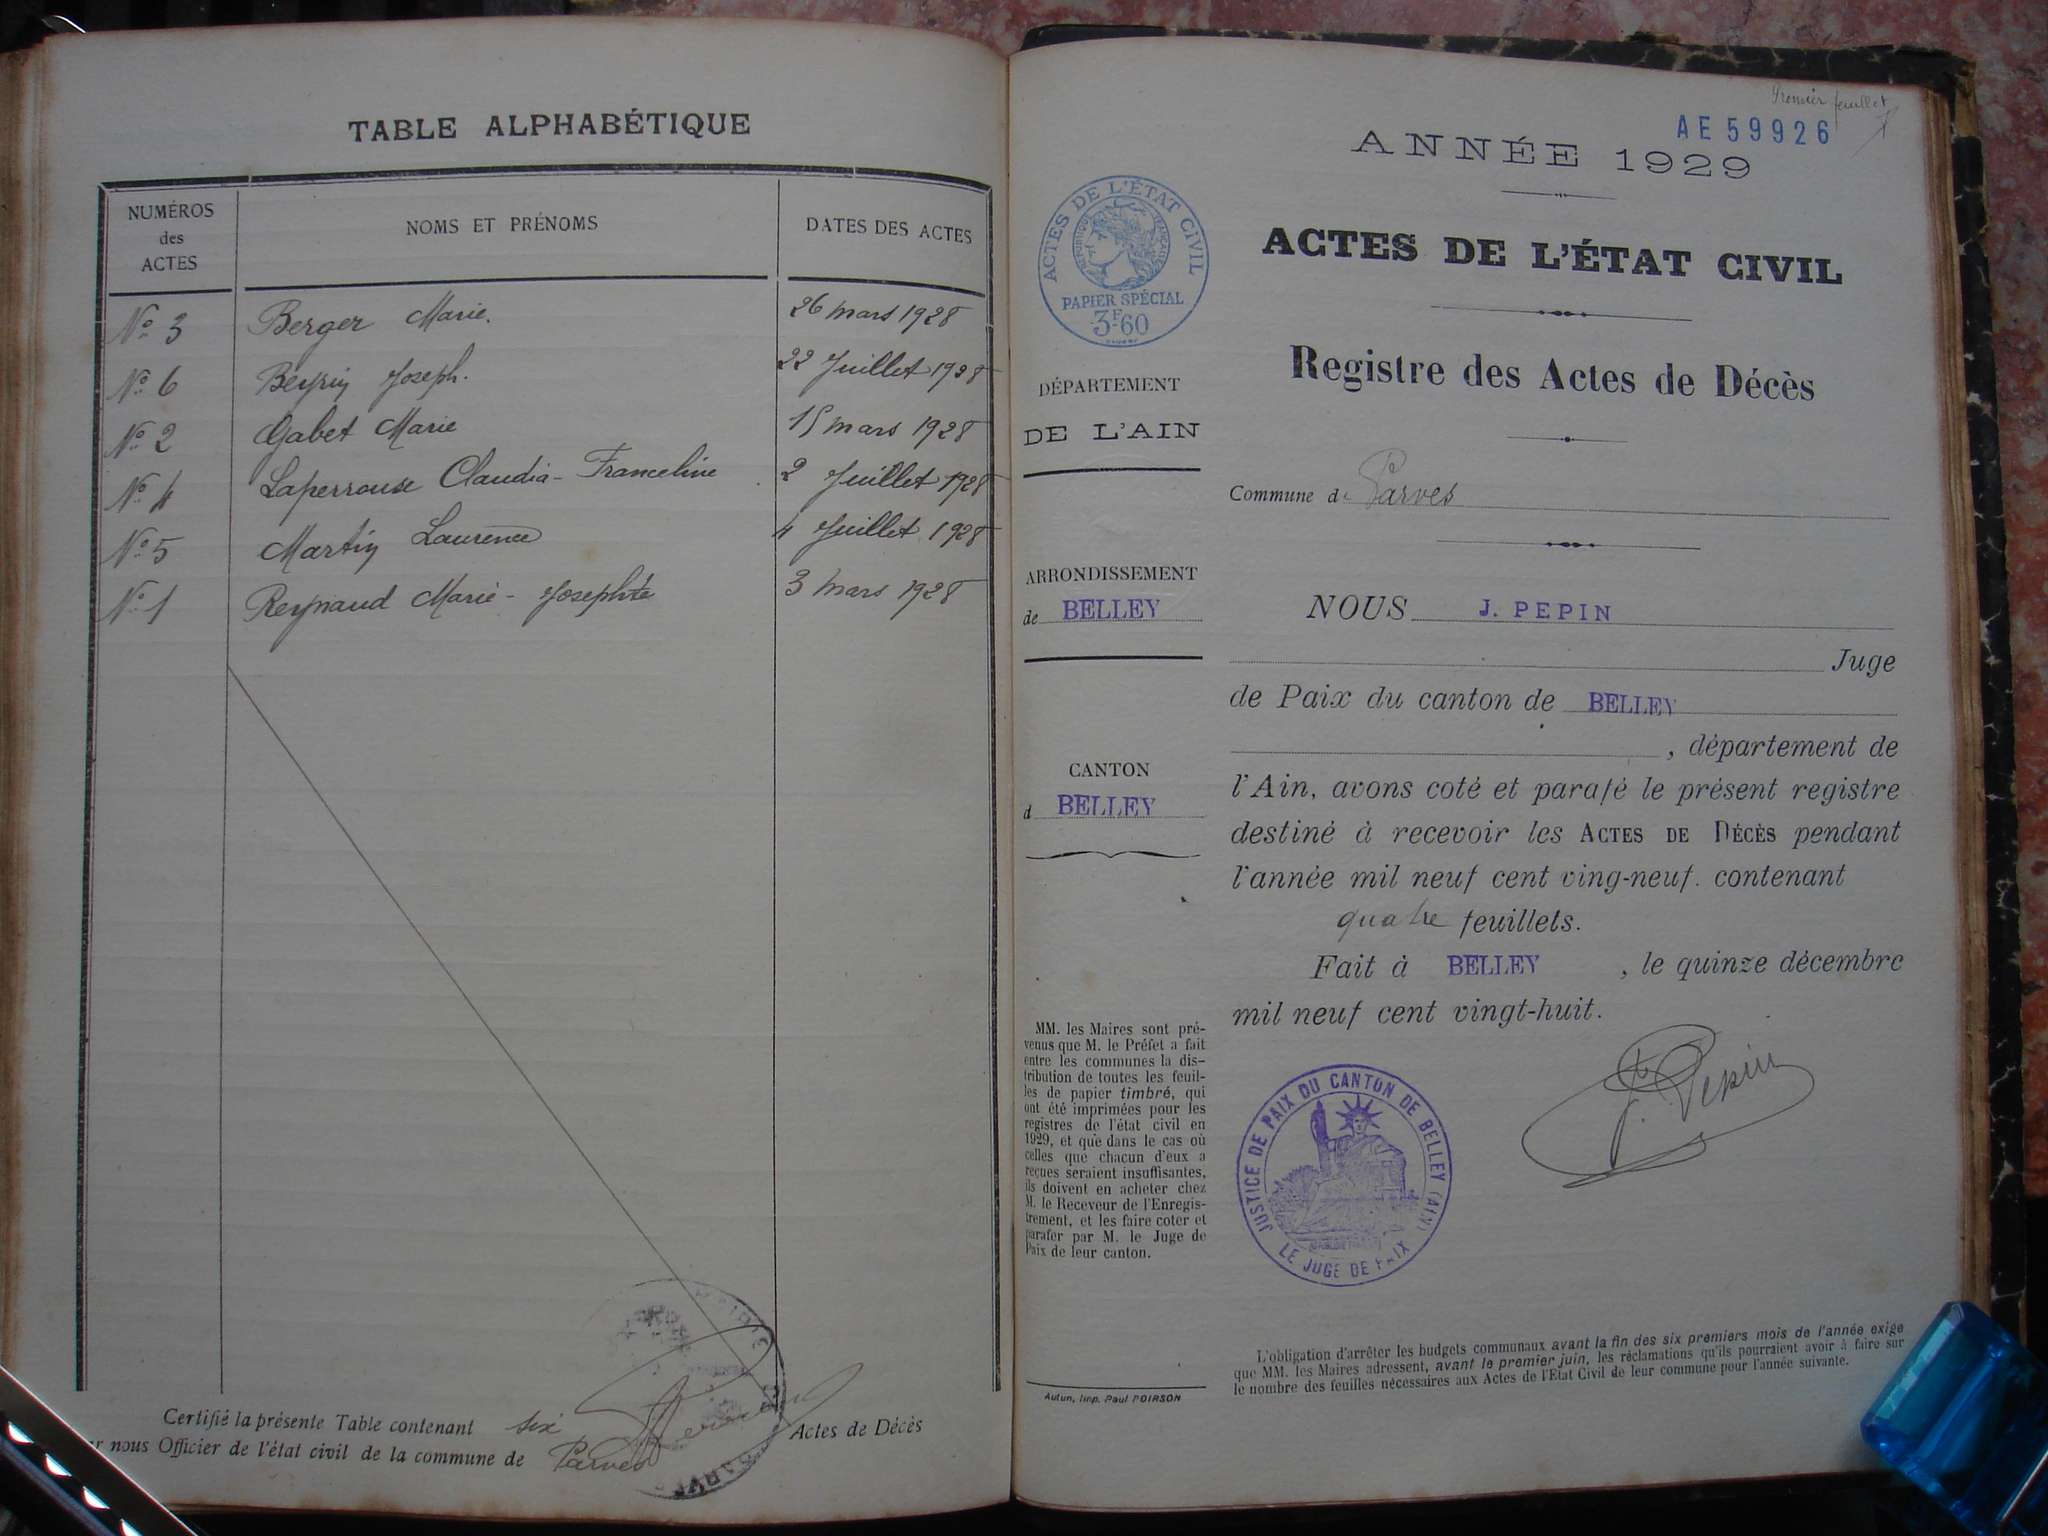 TABLE ALPHABÉTIQUE
NUMÉROS
des
ACTES
NOMS ET PRÉNOMS
DATES DES ACTES
No 3 Berger Marie. 26 mars 1928
No 6 Joseph. 22 Juillet 1928
No 2 Gabet Marie 15 mars 1928
No 4 Laperrouse Claudia-Franceline 2 Juillet 1928
No 5 Martin Laurence 4 Juillet 1928
No 1 Reynaud Marie-Josephte 3 mars 1928
Certifié la présente Table contenant six Actes de Décès
nous Officier de l'état civil de la commune de Parves
Premier feuillet
AE 59926
ANNÉE 1929
ACTES DE L'ÉTAT CIVIL
RÉPUBLIQUE FRANÇAISE
PAPIER SPÉCIAL
3F60
ACTES DE L'ÉTAT CIVIL
Registre des Actes de Décès
DÉPARTEMENT
DE L'AIN
Commune d Parves
ARRONDISSEMENT
de BELLEY
CANTON
d BELLEY
NOUS J. PEPIN
Juge
de Paix du canton de BELLEY
, département de
l'Ain, avons coté et parafé le présent registre
destiné à recevoir les ACTES DE DÉCÈS pendant
l'année mil neuf cent ving-neuf. contenant
quatre feuillets.
Fait à BELLEY , le quinze décembre
mil neuf cent vingt-huit.
J. Pepin
JUSTICE DE PAIX DU CANTON DE BELLEY (AIN)
LE JUGE DE PAIX
MM. les Maires sont pré-
venus que M. le Préfet a fait
entre les communes la dis-
tribution de toutes les feuil-
les de papier timbré, qui
ont été imprimées pour les
registres de l'état civil en
1929, et que dans le cas où
celles que chacun d'eux a
reçues seraient insuffisantes,
ils doivent en acheter chez
M. le Receveur de l'Enregis-
trement, et les faire coter et
parafer par M. le Juge de
Paix de leur canton.
Autun, Imp. Paul POIRSON
L'obligation d'arrêter les budgets communaux avant la fin des six premiers mois de l'année exige
que MM. les Maires adressent, avant le premier juin, les réclamations qu'ils pourraient avoir à faire sur
le nombre des feuilles nécessaires aux Actes de l'État Civil de leur commune pour l'année suivante.